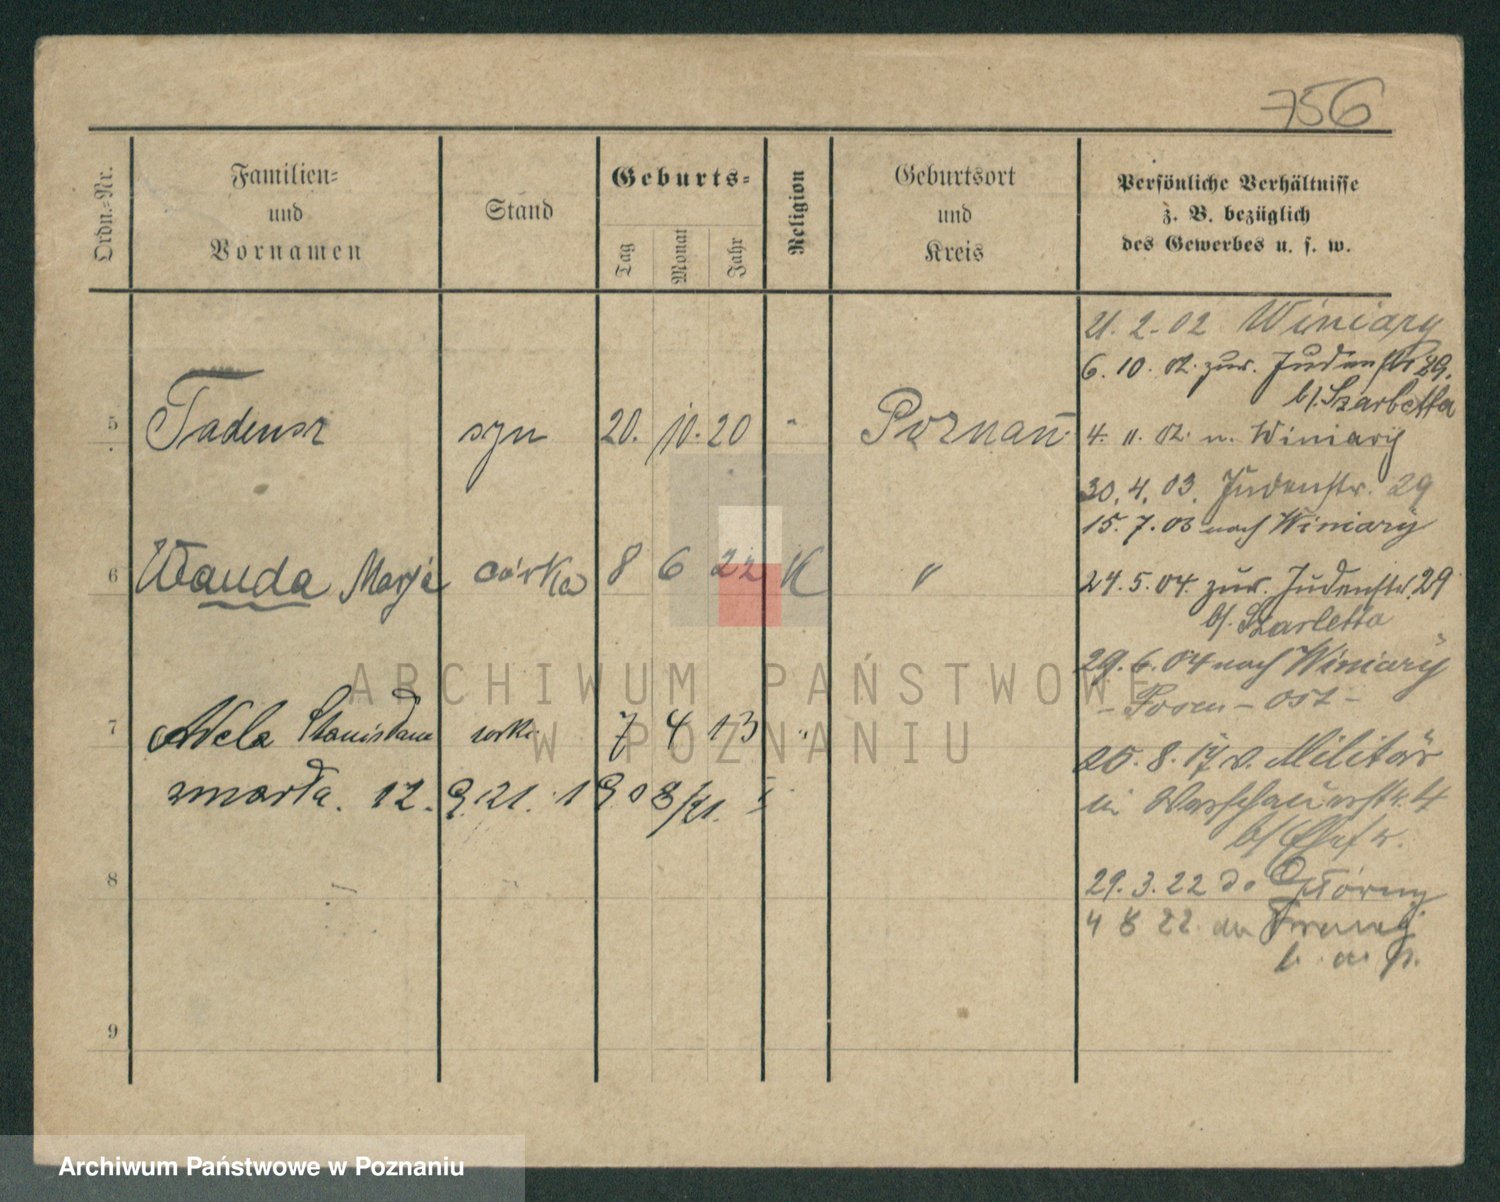 756
Ordn.-Nr.
Familien-
und
Vornamen
Stand
Geburts-
Tag
Monat
Jahr
Religion
Geburtsort
und
Kreis
Persönliche Verhältnisse
z. B. bezüglich
des Gewerbes u. s. w.
21. 2. 02 Winiary
6. 10. 02. zur. Judenstr 29.
b/. Szarletta
5 Tadeusz syn 20. 10. 20 " Poznań
4. 11. 02. n. Winiary
30. 4. 03. Judenstr. 29
15. 7. 03 nach Winiary
6 Wanda Marja córka 8 6 22 K "
24. 5. 04. zur. Judenstr. 29
b/. Szarletta
29. 6. 04 nach Winiary
- Posen - Ost -
7 Adela Stanisława córka 7 4 13 "
zmarła. 12. 9. 21. 1908/21. I
25. 8. 17 v. Militär
in Warschauerstr. 4
b/ Ehefr.
8
29. 3. 22 do Główny
4 8 22
9
ARCHIWUM PAŃSTWOWE
W POZNANIU
Archiwum Państwowe w Poznaniu